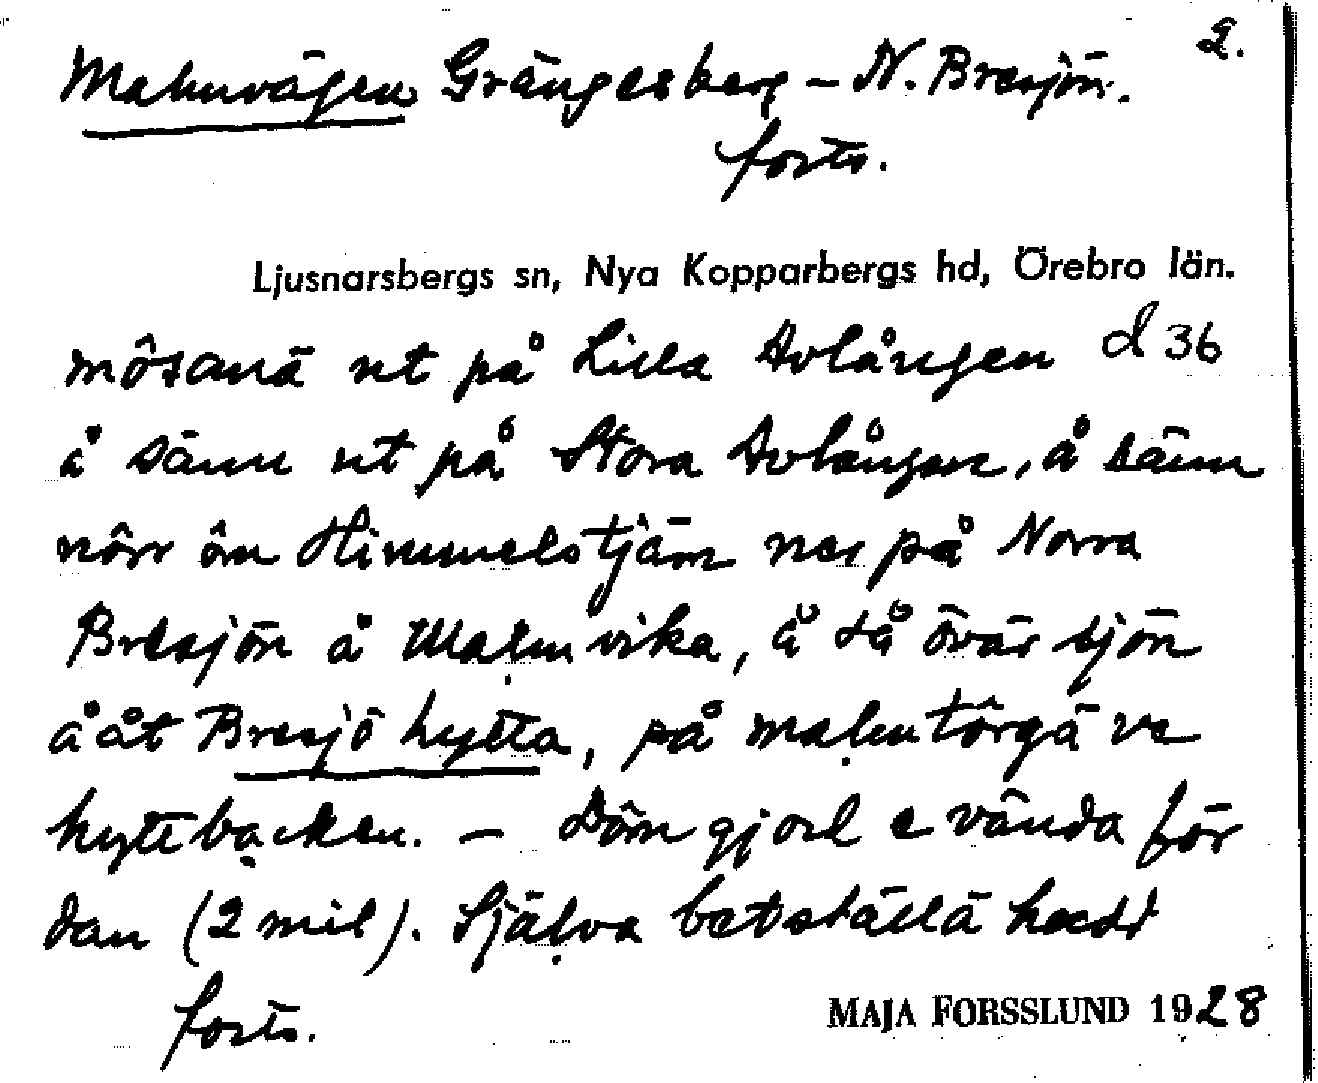 2.
Malmvägen Grängesberg – N. Bresjön.
forts.
Ljusnarsbergs sn, Nya Kopparbergs hd, Örebro län.
môsanä ut på Lilla Avlången d 36
å sänn ut på Stora Avlången, å sänn
nôrr ôm Himmelstjärn ner på Norra
Bresjön å Maḷmvika, å då över sjön
ååt Bresjöhytta, på maḷmtôrgä ve
hyttbacken. – Dôm gjorl e vända för
dan (2 mil). Själva betställä hadd
forts.
MAJA FORSSLUND 1928